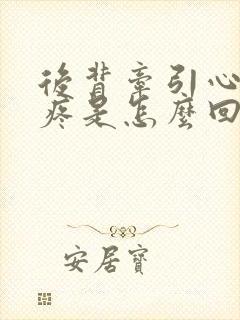 後背牽引心
疼是怎麼回
安居寶